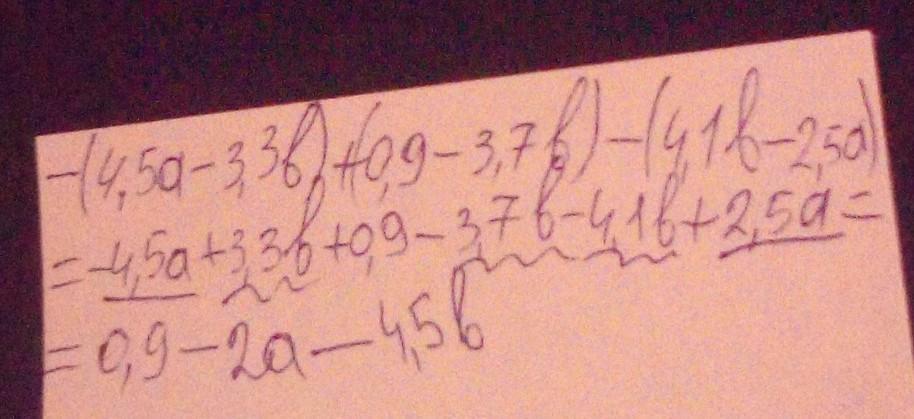 -(4,5a-3,3b)+(0,9-3,7b)-(4,1b-2,5a)
=-4,5a+3,3b+0,9-3,7b-4,1b+2,5a=
=0,9-2a-4,5b